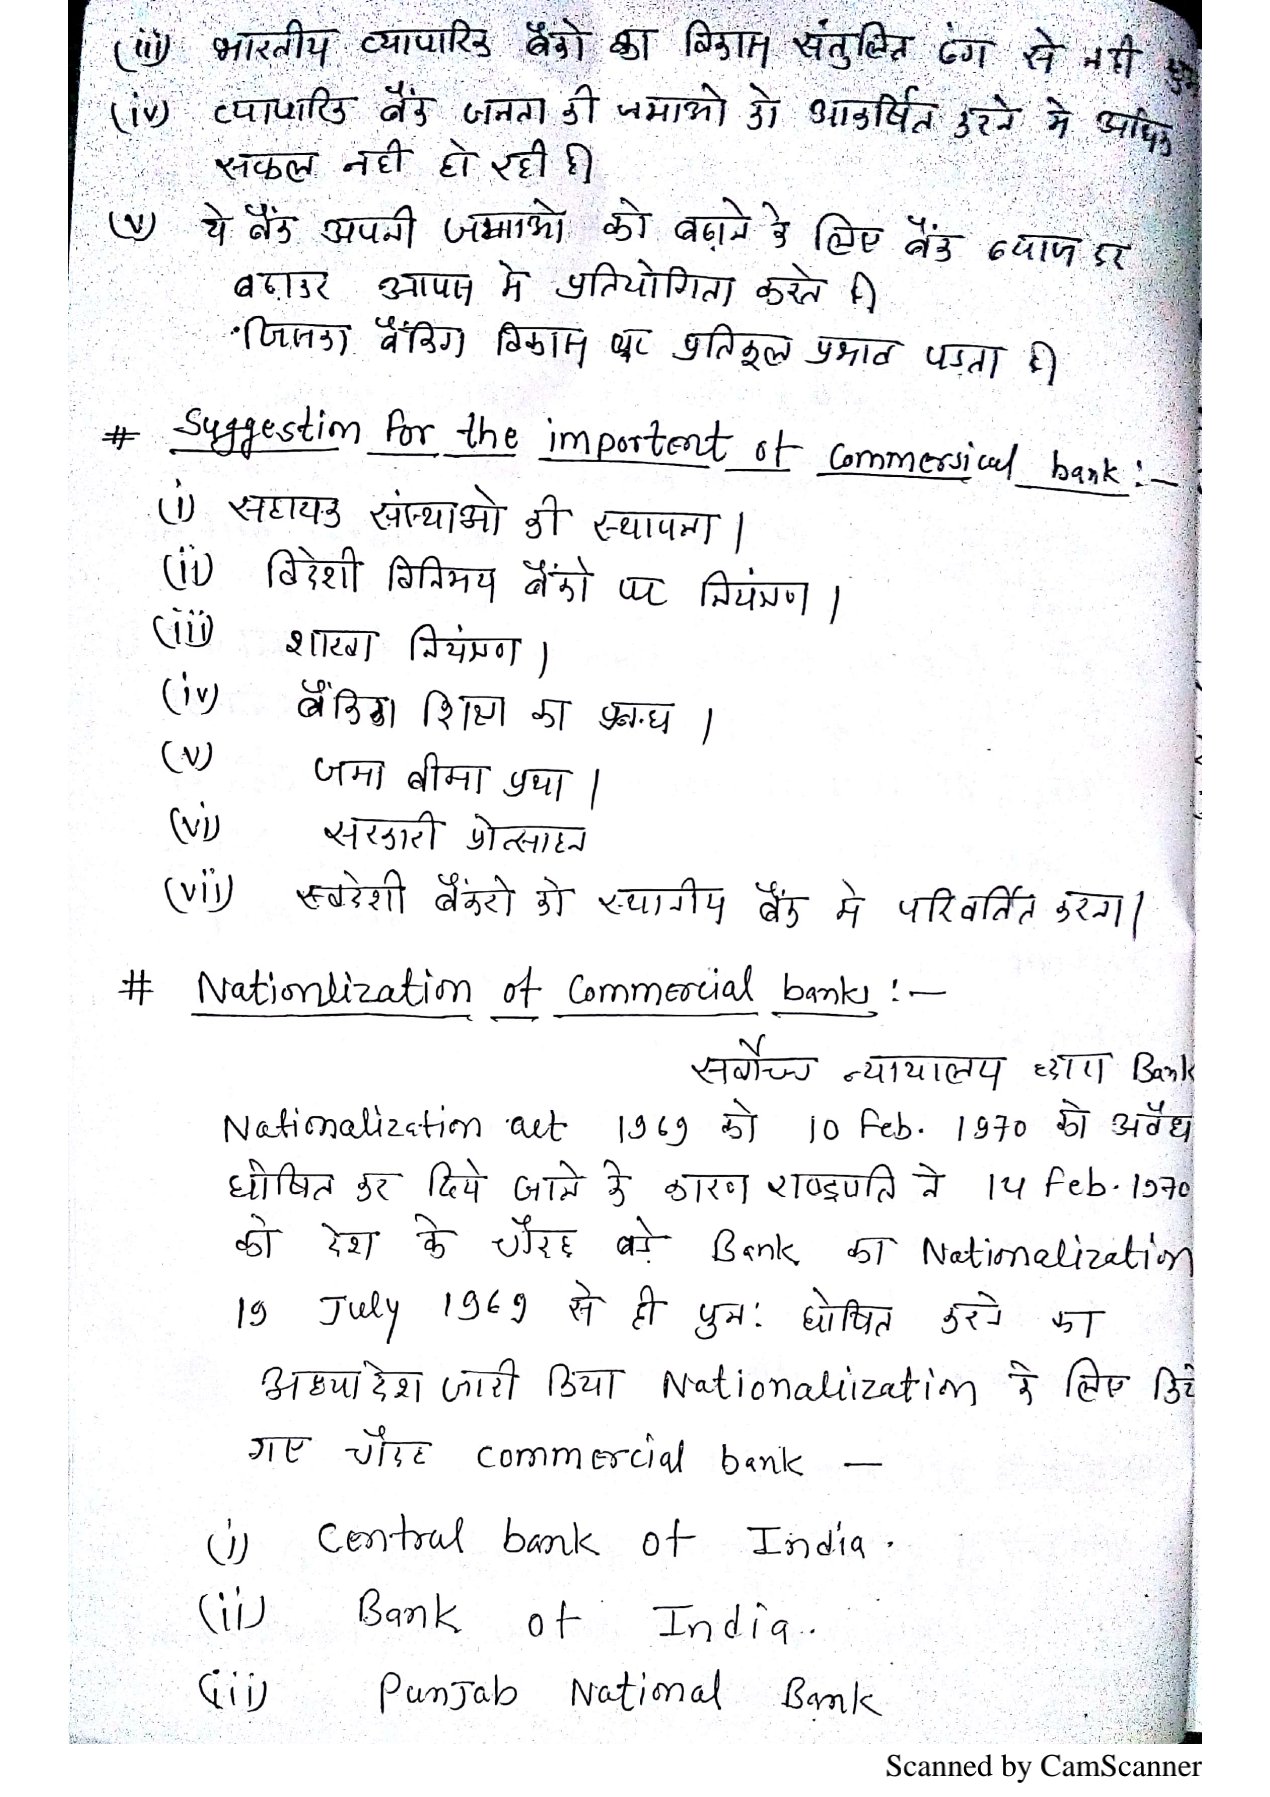 (iii) भारतीय व्यापारिक बैंको का विकास संतुलित ढंग से नही
(iv) व्यापारिक बैंक जनता की जमाओ को आकर्षित करने मे अधिक
सफल नही हो रही है।
(v) ये बैंक अपनी जमाओ को बढ़ाने के लिए बैंक ब्याज दर
बढ़ाकर आपस मे प्रतियोगिता करते है।
जिसका बैंकिंग विकास पर प्रतिकूल प्रभाव पड़ता है।
# Suggestion for the importent of Commersical bank :-
(i) सहायक संस्थाओ की स्थापना।
(ii) विदेशी विनिमय बैंको पर नियंत्रण।
(iii) शाख नियंत्रण।
(iv) बैंकिंग शिक्षा का प्रबन्ध।
(v) जमा बीमा प्रथा।
(vi) सरकारी प्रोत्साहन
(vii) स्वदेशी बैंकरो को स्थानीय बैंक मे परिवर्तित करना।
# Nationlization of Commercial banks :-
सर्वोच्च न्यायालय द्वारा Bank
Nationalization act 1969 को 10 Feb. 1970 को अवैध
घोषित कर दिये जाने के कारण राष्ट्रपति ने 14 Feb. 1970
को देश के चौदह बड़े Bank का Nationalization
19 July 1969 से ही पुनः घोषित करने का
अध्यादेश जारी किया Nationaliization के लिए किये
गए चौदह commercial bank -
(i) Central bank of India.
(ii) Bank of India.
(iii) Punjab National Bank
Scanned by CamScanner